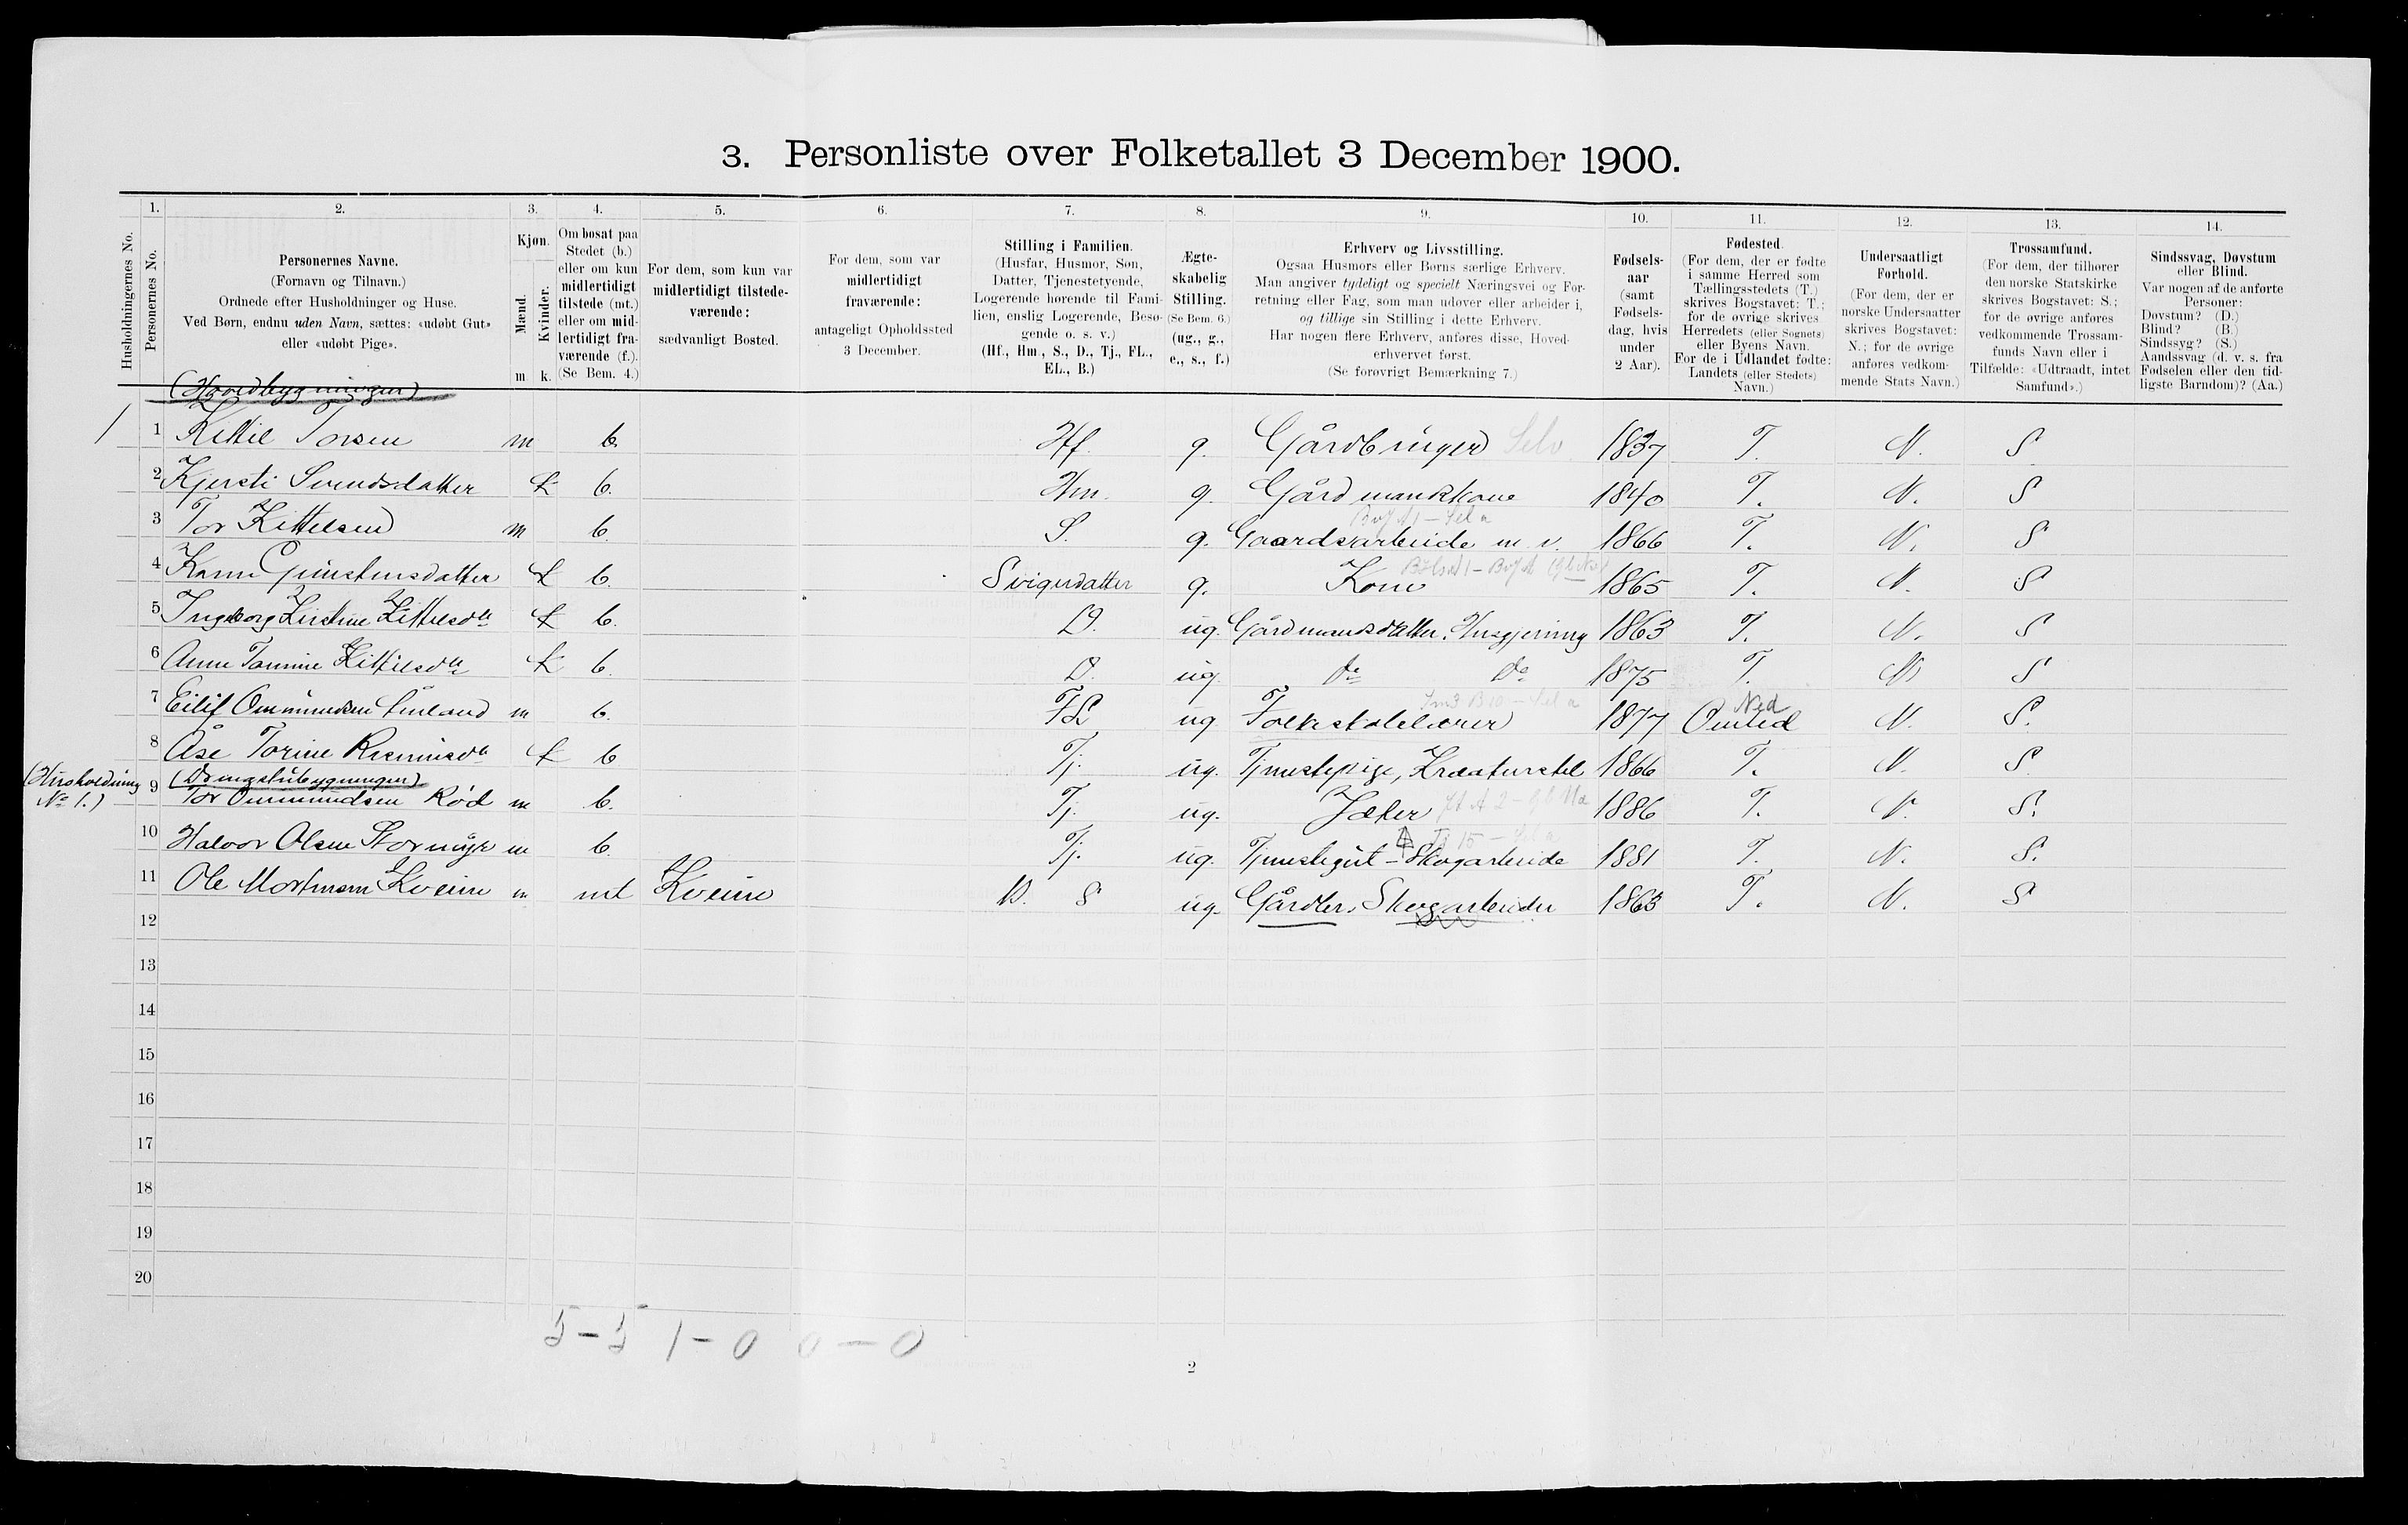 3. Personliste over Folketallet 3 December 1900.
1. 2. 3. 4. 5. 6. 7. 8. 9. 10. 11. 12. 13. 14.
Husholdningernes No.
Personernes No.
Personernes Navne.
(Fornavn og Tilnavn.)
Ordnede efter Husholdninger og Huse.
Ved Børn, endnu uden Navn, sættes: «udøbt Gut»
eller «udøbt Pige».
Kjøn.
Mænd.
Kvinder.
m. k.
Om bosat paa
Stedet (b.)
eller om kun
midlertidigt
tilstede (mt.)
eller om mid-
lertidigt fra-
værende (f.).
(Se Bem. 4.)
For dem, som kun var
midlertidigt tilstede-
værende:
sædvanligt Bosted.
For dem, som var
midlertidigt
fraværende:
antageligt Opholdssted
3 December.
Stilling i Familien.
(Husfar, Husmor, Søn,
Datter, Tjenestetyende,
Logerende hørende til Fami-
lien, enslig Logerende, Besø-
gende o. s. v.)
(Hf., Hm., S., D., Tj., FL.,
EL., B.)
Ægte-
skabelig
Stilling.
(Se Bem. 6.)
(ug., g.,
e., s., f.)
Erhverv og Livsstilling.
Ogsaa Husmors eller Børns særlige Erhverv.
Man angiver tydeligt og specielt Næringsvei og For-
retning eller Fag, som man udøver eller arbeider i,
og tillige sin Stilling i dette Erhverv.
Har nogen flere Erhverv, anføres disse, Hoved-
erhvervet først.
(Se forøvrigt Bemærkning 7.)
Fødsels-
aar
(samt
Fødsels-
dag, hvis
under
2 Aar).
Fødested.
(For dem, der er fødte
i samme Herred som
Tællingsstedets (T.)
skrives Bogstavet: T.;
for de øvrige skrives
Herredets (eller Sognets)
eller Byens Navn.
For de i Udlandet fødte:
Landets (eller Stedets)
Navn.)
Undersaatligt
Forhold.
(For dem, der er
norske Undersaatter
skrives Bogstavet:
N.; for de øvrige
anføres vedkom-
mende Stats Navn.)
Trossamfund.
(For dem, der tilhører
den norske Statskirke
skrives Bogstavet: S.;
for de øvrige anføres
vedkommende Trossam-
funds Navn eller i
Tilfælde: «Udtraadt, intet
Samfund».)
Sindssvag, Døvstum
eller Blind.
Var nogen af de anførte
Personer:
Døvstum? (D.)
Blind? (B.)
Sindssyg? (S.)
Aandssvag (d. v. s. fra
Fødselen eller den tid-
ligste Barndom)? (Aa.)
(Hovedbygningen)
1 1 Kittil Torsen m b. Hf. g. Gårdbruger Selv 1837 T. N. S
2 Kjersti Svendsdatter k b. Hm. g. Gårdmandskone 1840 T. N. S
3 Tor Kittelsen m b. S. g. Gaardsarbeide m. v. 1866 T. N. S
4 Karen k b. Svigerdatter g. Kone 1865 T. N. S
5 Ingeborg Kirstine Kittelsdtr k b. D. ug. Gårdmandsdatter, Husgjerning 1863 T. N. S
6 Anne Tomine Kittilsdtr k b. D. ug. do do 1875 T. N S
7 Eilif Ommundsen m b. FL ug Folkeskolelærer 1877 Omlid Ned N. S.
8 Åse Torine k b Tj. ug. Tjenestepige, Kreaturstel 1866 T. N. S.
(Husholdning
No 1.)
(Drengestubygningen)
9 Tor Ommundsen Rød m b. Tj. ug. 1886 T. N. S.
10 Halvor Olsen Stormyr m b. Tj. ug. Tjenestegut - Skogarbeide 1881 T. N. S.
11 Ole Mortensen Kveim m mt Kveim B. S ug. Gårdbr., Skogarbeider 1863 T. N. S
12
13
14
15
16
17
18
19
20
5-5 1-0 0-0
2